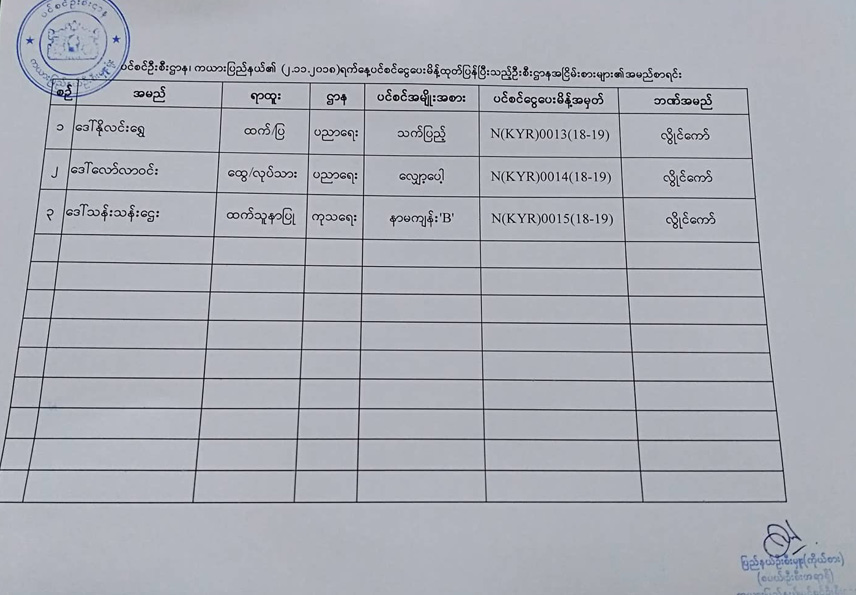 ပင်စင်ဦးစီးဌာန
ပင်စင်ဦးစီးဌာန၊ ကယားပြည်နယ်၏ (၂.၁၁.၂၀၁၈)ရက်နေ့ပင်စင်ငွေပေးမိန့်ထုတ်ပြန်ပြီးသည့်ဦးစီးဌာနအငြိမ်းစားများ၏အမည်စာရင်း
စဉ် အမည် ရာထူး ဌာန ပင်စင်အမျိုးအစား ပင်စင်ငွေပေးမိန့်အမှတ် ဘဏ်အမည်
၁ ဒေါ်နိုလင်းရွှေ ထက်/ပြ ပညာရေး သက်ပြည့် N(KYR)0013(18-19) လွိုင်ကော်
၂ ဒေါ်လော်လာဝင်း ထွေ/လုပ်သား ပညာရေး လျှော့ပေါ့ N(KYR)0014(18-19) လွိုင်ကော်
၃ ဒေါ်သန်းသန်းဌေး ထက်သူနာပြု ကုသရေး နာမကျန်း'B' N(KYR)0015(18-19) လွိုင်ကော်
ပြည်နယ်ဦးစီးမှူး(ကိုယ်စား)